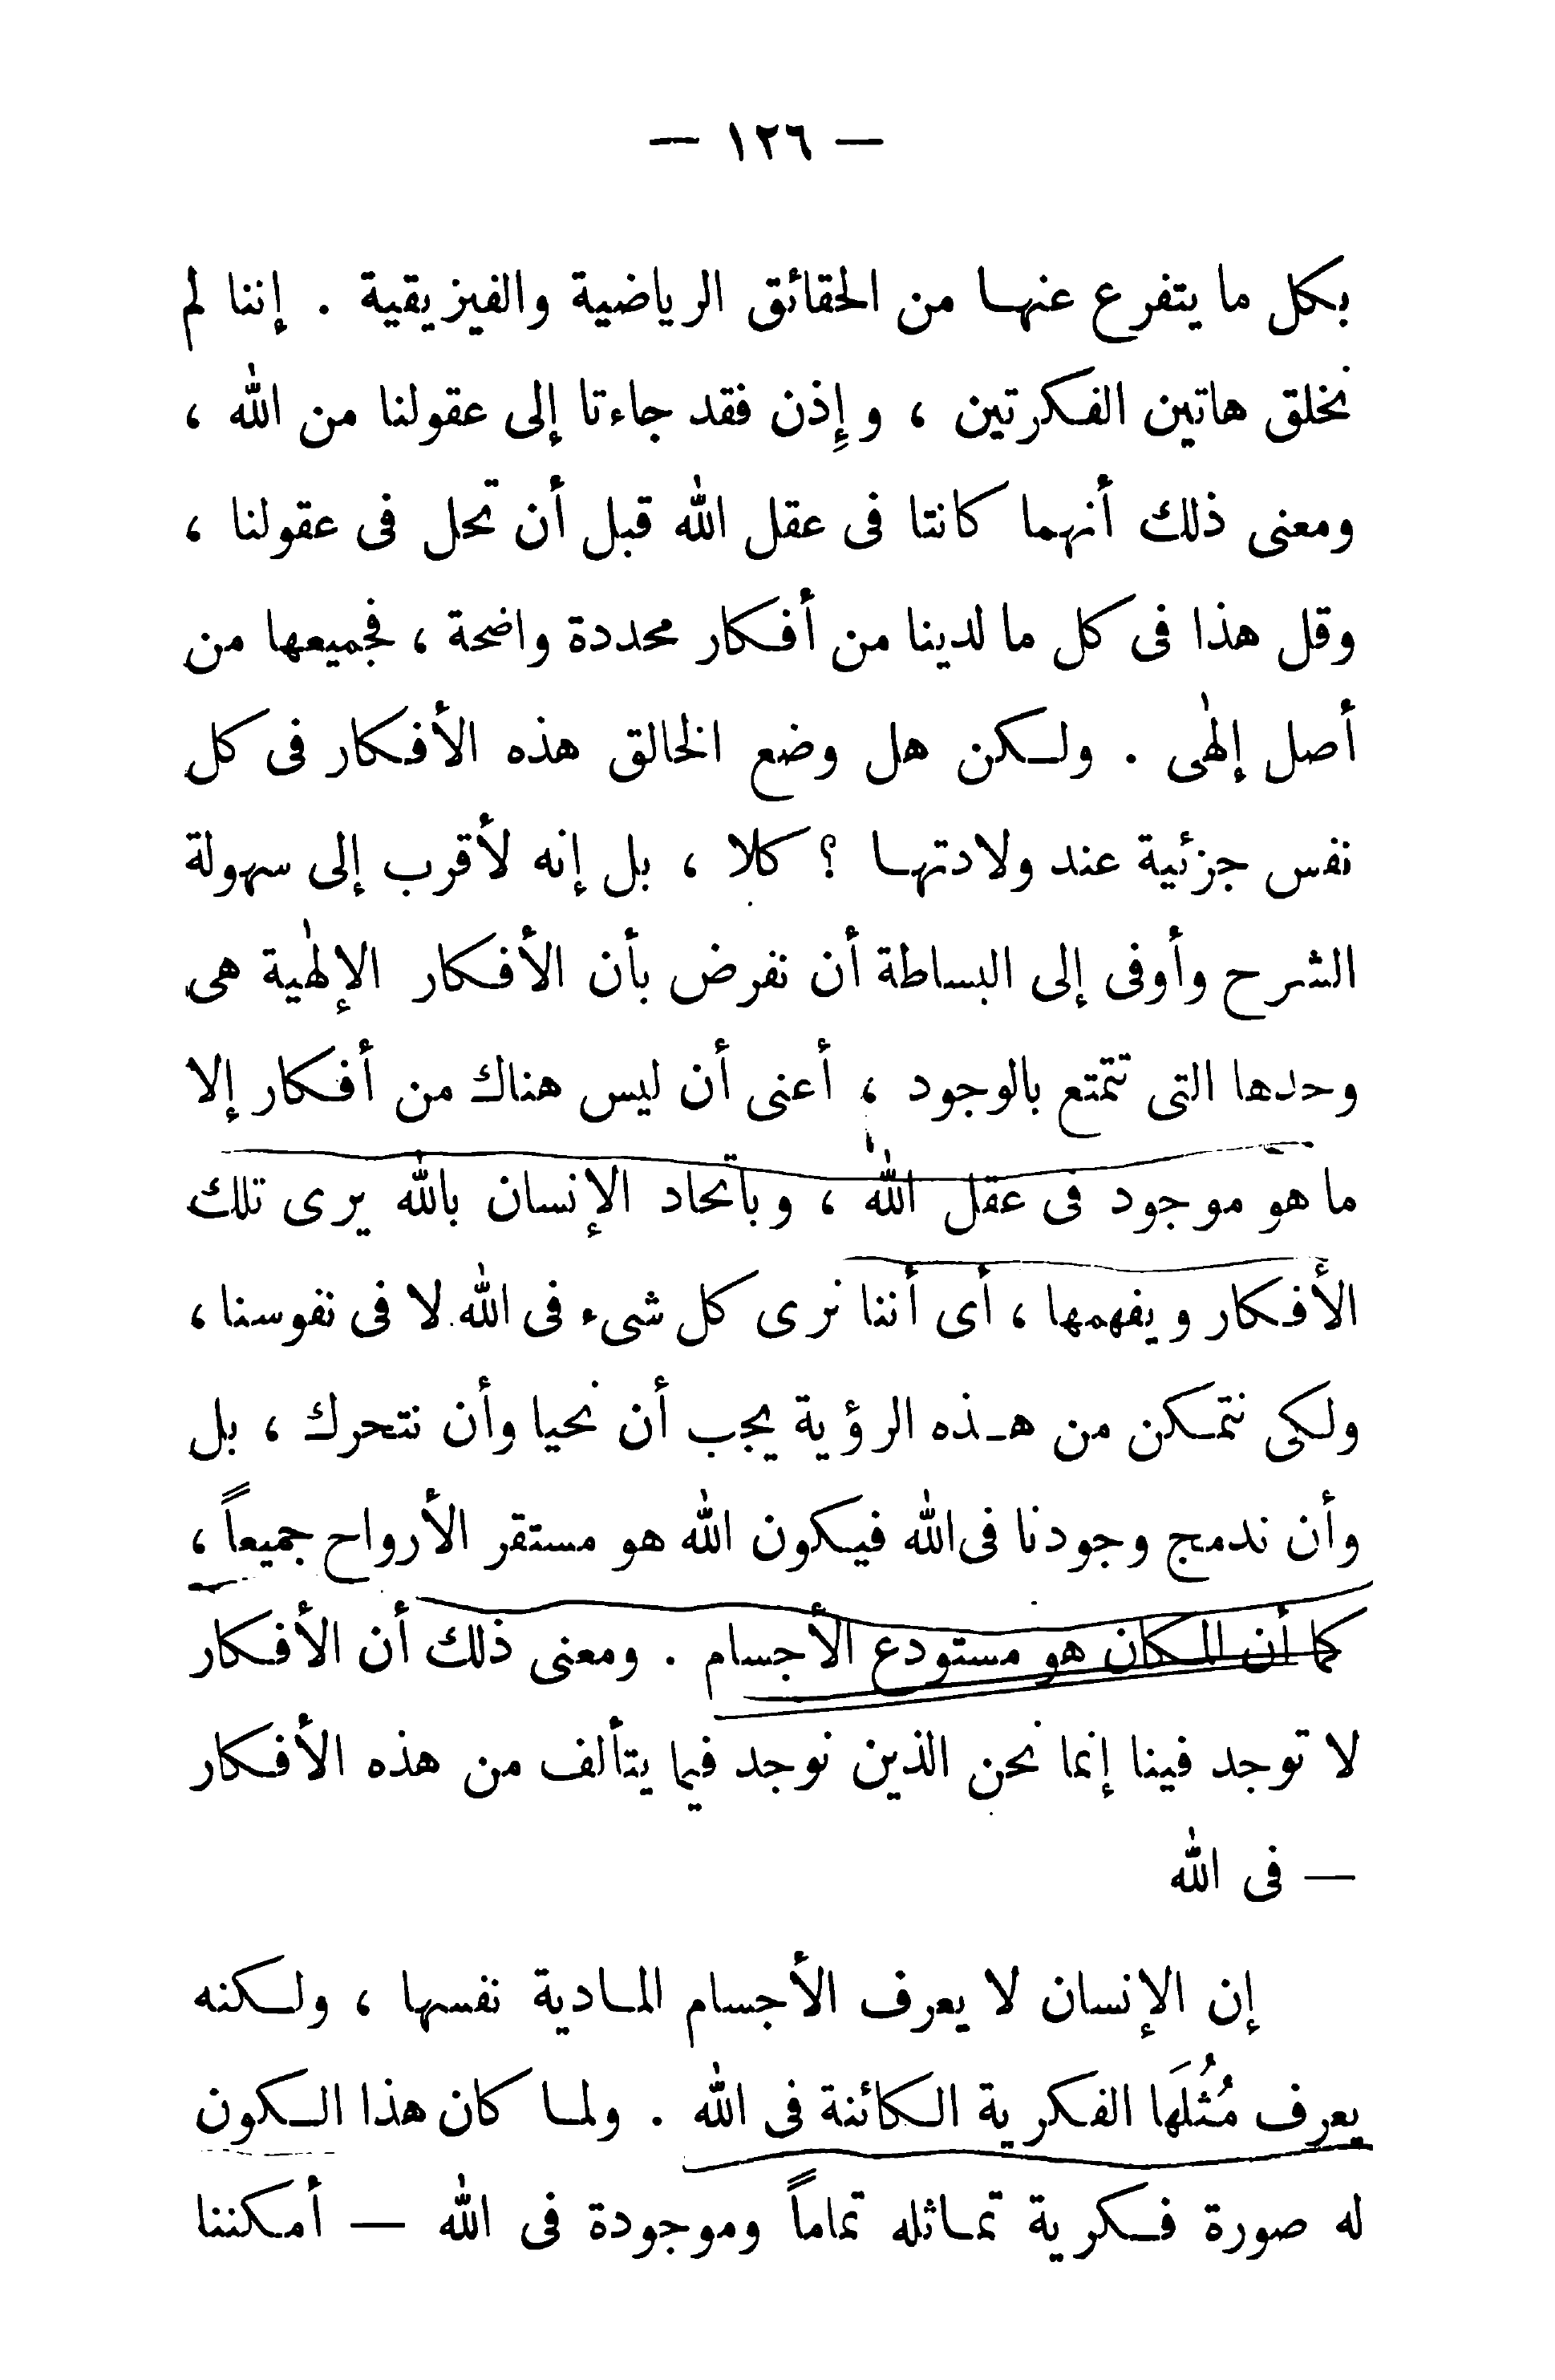 — ١٢٦ —
بكل ما يتفرع عنها من الحقائق الرياضية والفيزيقية . إننا لم
نخلق هاتين الفكرتين ، وإِذن فقد جاءتا إلى عقولنا من الله ،
ومعنى ذلك أنهما كانتا فى عقل الله قبل أن تحل فى عقولنا ،
وقل هذا فى كل ما لدينا من أفكار محددة واضحة ، فجميعها من
أصل إلهٰى . ولكن هل وضع الخالق هذه الأفكار فى كل
نفس جزئية عند ولادتها ؟ كلا ، بل إنه لأقرب إلى سهولة
الشرح وأوفى إلى البساطة أن نفرض بأن الأفكار الإلهٰية هى
وحدها التى تتمتع بالوجود ، أعنى أن ليس هناك من أفكار إلا
ما هو موجود فى عقل الله ، وباتحاد الإنسان بالله يرى تلك
الأفكار ويفهمها ، أى أننا نرى كل شىء فى الله لا فى نفوسنا ،
ولكى نتمكن من هذه الرؤية يجب أن نحيا وأن نتحرك ، بل
وأن ندمج وجودنا فى الله فيكون الله هو مستقر الأرواح جميعاً ،
كما أن المكان هو مستودع الأجسام . ومعنى ذلك أن الأفكار
لا توجد فينا إنما نحن الذين نوجد فيما يتألف من هذه الأفكار
— فى الله
إن الإنسان لا يعرف الأجسام المادية نفسها ، ولكنه
يعرف مُثُلَها الفكرية الكائنة فى الله . ولما كان هذا الكون
له صورة فكرية تماثله تماماً وموجودة فى الله — أمكننا